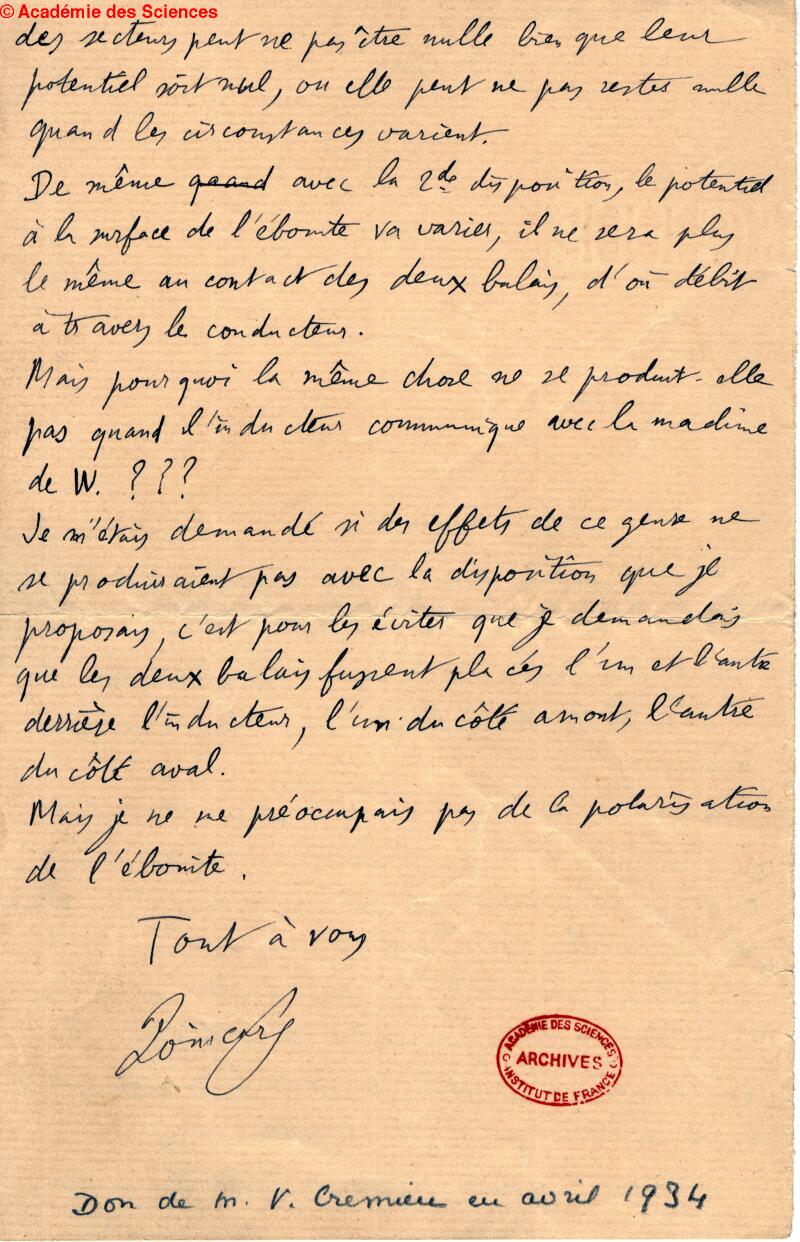 © Académie des Sciences
des secteurs peut ne pas être nulle bien que leur
potentiel soit nul, ou elle peut ne pas rester nulle
quand les circonstances varient.
De même quand avec la 2de disposition, le potentiel
à la surface de l'ébonite va varier, il ne sera plus
le même au contact des deux balais, d'où débit
à travers le conducteur.
Mais pourquoi la même chose ne se produit-elle
pas quand l'inducteur communique avec la machine
de W. ???
Je m'étais demandé si des effets de ce genre ne
se produiraient pas avec la disposition que je
proposais, c'est pour les éviter que je demandais
que les deux balais fussent placés l'un et l'autre
derrière l'inducteur, l'un du côté amont, l'autre
du côté aval.
Mais je ne me préoccupais pas de la polarisation
de l'ébonite.
Tout à vous
Poincaré
ACADÉMIE DES SCIENCES
ARCHIVES
INSTITUT DE FRANCE
Don de M. V. Cremieu en avril 1934